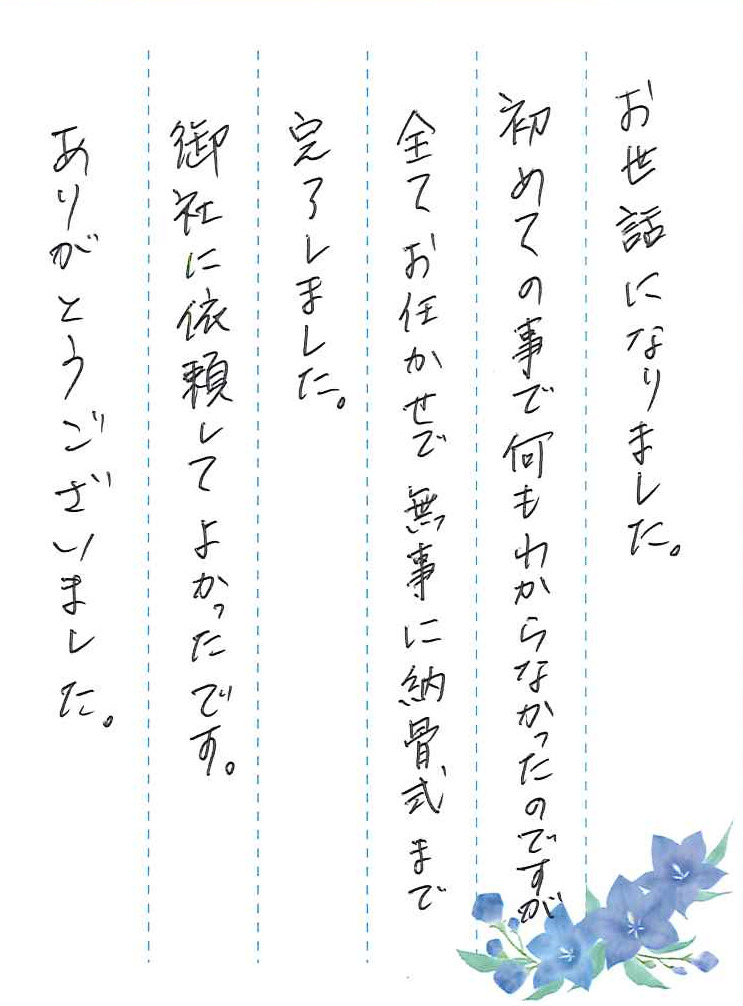 お世話になりました。
初めての事で何もわからなかったのですが
全てお任かせで無事に納骨式まで
完了しました。
御社に依頼してよかったです。
ありがとうございました。